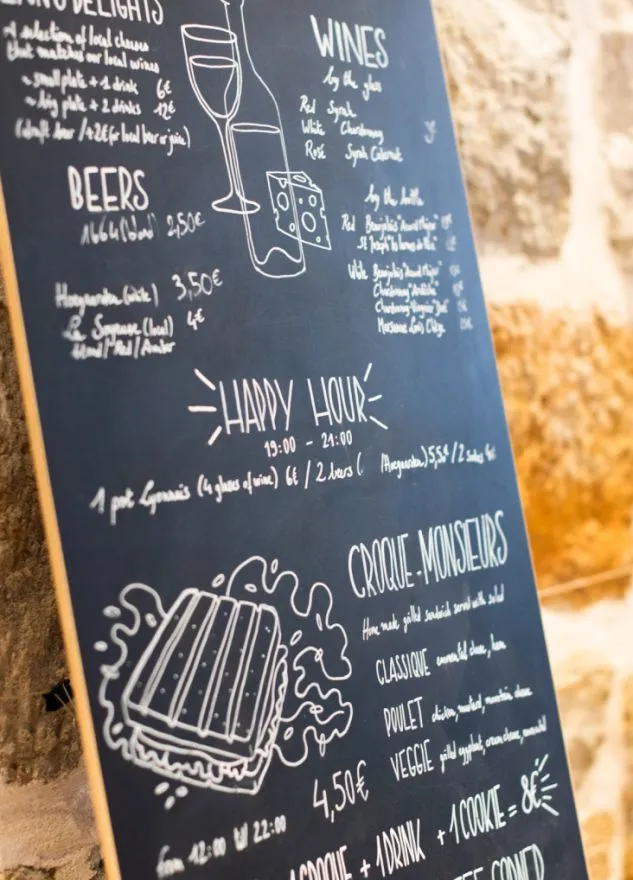 DELIGHTS
A selection of local cheeses
that matches our local wines
~ small plate + 1 drink 6€
~ big plate + 2 drinks 12€
(draft beer /+2€ for local beer or juice)
BEERS
1664 (blond) 2,50€
Hoegaarden (white) 3,50€
La Soyeuse (local) 4€
blond/Red/Amber
WINES
by the glass
Red Syrah
White Chardonnay
Rosé Syrah Cabernet
by the bottle
Red Beaujolais
St Joseph
White Beaujolais
Chardonnay
Chardonnay-Viognier
Marsanne
HAPPY HOUR
19:00 - 21:00
1 pot Lyonnais (4 glasses of wine) 6€ / 2 beers ( Hoegaarden) 5,5€ / 2
CROQUE-MONSIEURS
Home made grilled sandwich served with salad
CLASSIQUE emmental cheese, ham
POULET chicken, mustard, mountain cheese
VEGGIE grilled eggplant, cream cheese,
4,50€
from 12:00 till 22:00
1 CROQUE + 1 DRINK + 1 COOKIE = 8€
CORNER